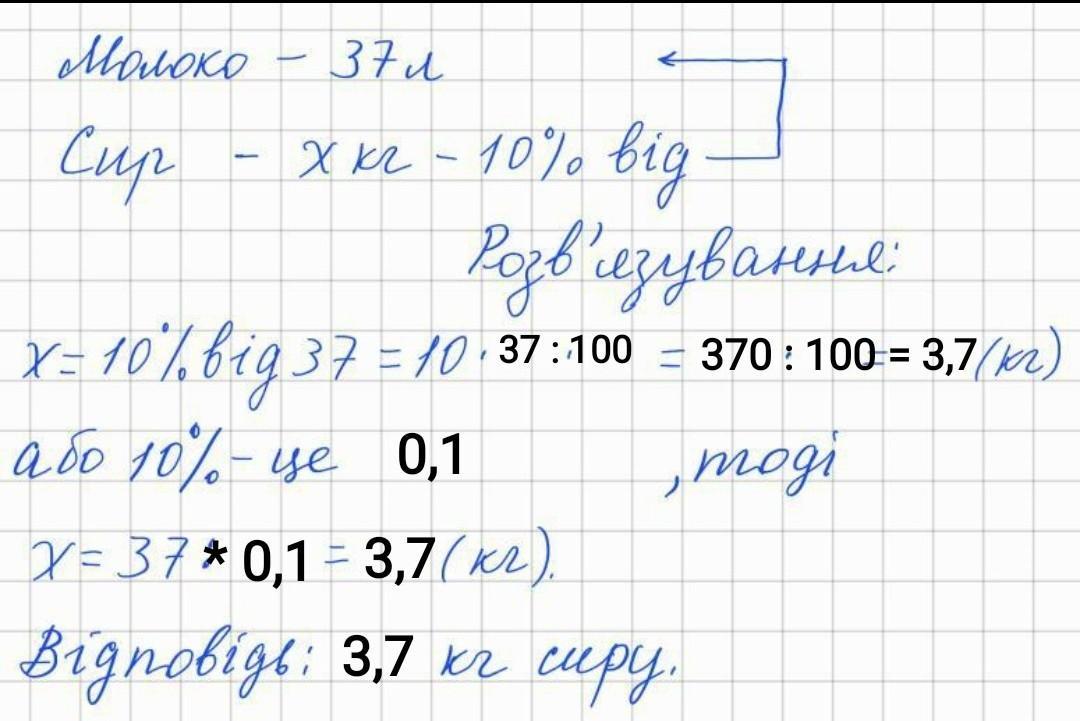 Молоко - 37 л
Сир - x кг - 10% від
Розв'язування:
x = 10% від 37 = 10 · 37 : 100 = 370 : 100 = 3,7 (кг)
або 10% - це 0,1 , тоді
x = 37 * 0,1 = 3,7 (кг).
Відповідь: 3,7 кг сиру.